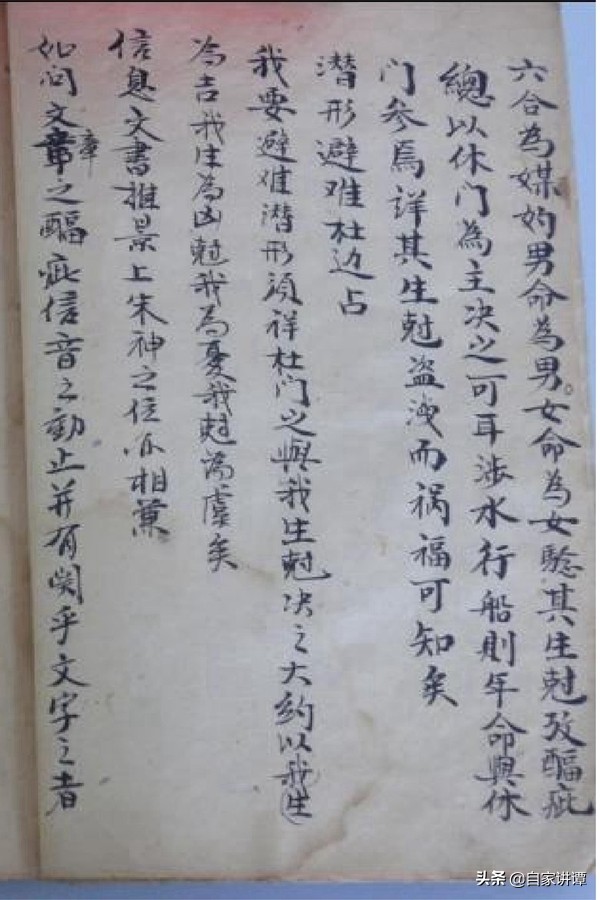 六合為媒妁男命為男。女命為女驗其生尅攷醽疵
總以休门為主决之可耳涉水行船則年命與休
门参焉详其生尅盗洩而祸福可知矣
潜形避难杜边占
我要避难潜形须祥杜门之與我生尅决之大约以我生
为吉我生為凶尅我为憂我尅為虞矣
信息文書推景上朱神之位亦相兼
如问文章章之醽疵信音之動止并有関乎文字之者
头条 @自家讲谭